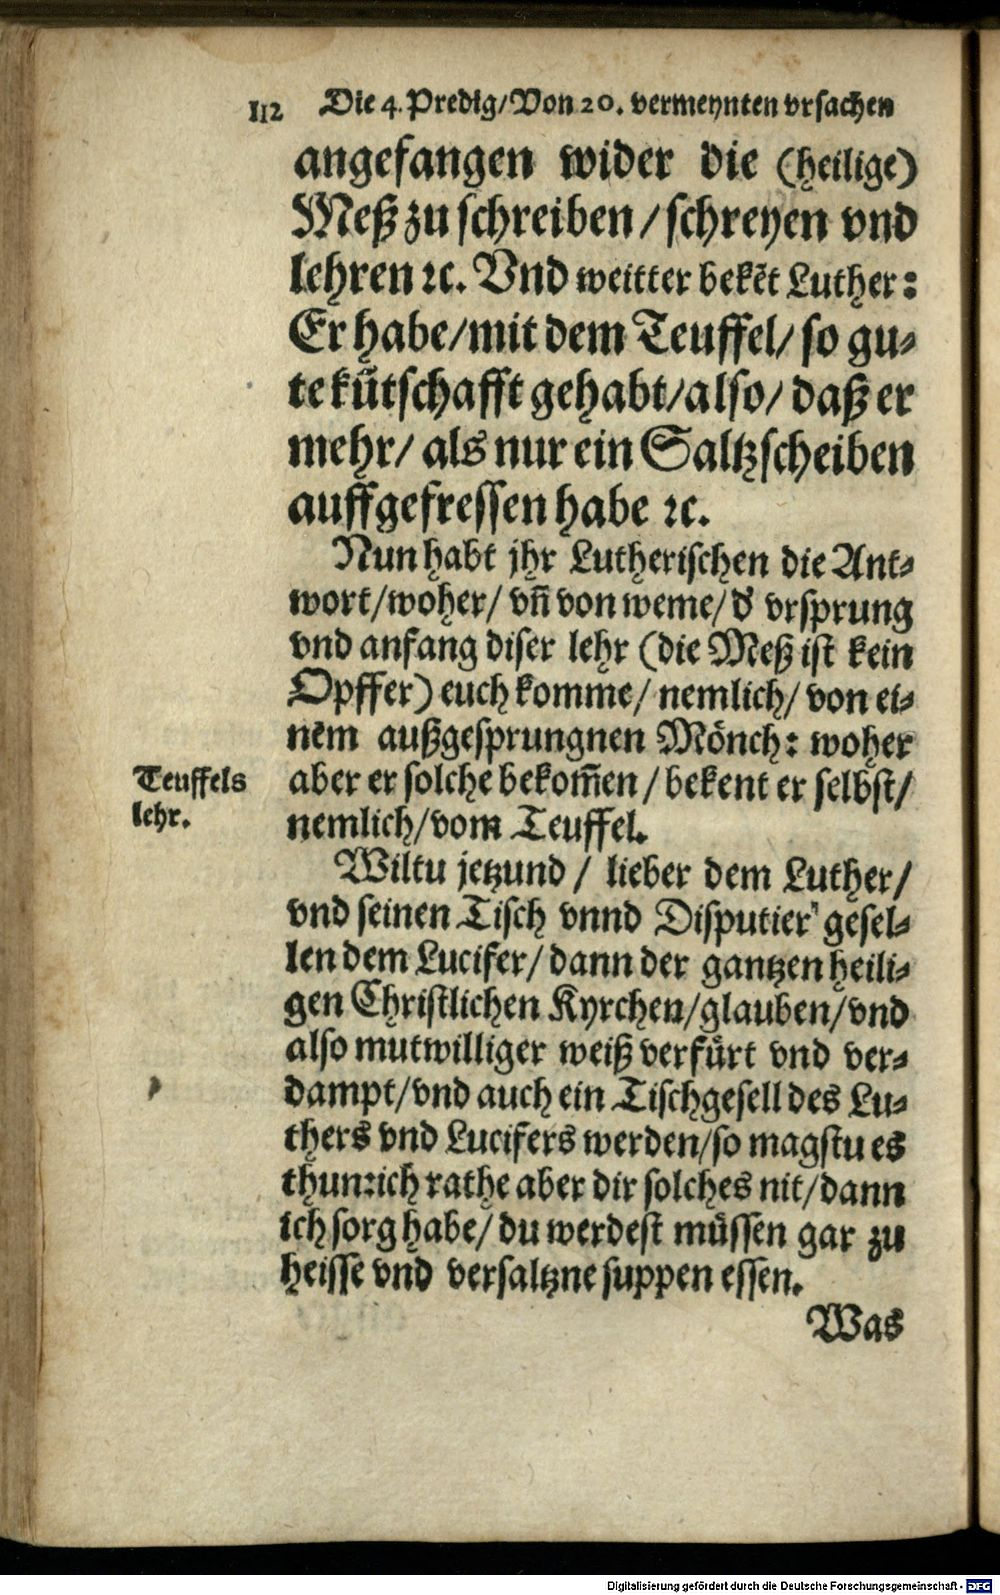 112 Die 4. Predig/Von 20. vermeynten vrsachen
angefangen wider die (heilige)
Meß zu schreiben/schreyen vnd
lehren ꝛc. Vnd weitter bekēt Luther:
Er habe/mit dem Teuffel/so gu-
te kūtschafft gehabt/also/daß er
mehr/als nur ein Saltzscheiben
auffgefressen habe ꝛc.
Nun habt jhr Lutherischen die Ant-
wort/woher/vñ von weme/d' vrsprung
vnd anfang diser lehr (die Meß ist kein
Opffer) euch komme/nemlich/von ei-
nem außgesprungnen Mönch: woher
Teuffels
lehr.
aber er solche bekom̄en/bekent er selbst/
nemlich/vom Teuffel.
Wiltu jetzund/lieber dem Luther/
vnd seinen Tisch vnnd Disputier gesel-
len dem Lucifer/dann der gantzen heili-
gen Christlichen Kyrchen/glauben/vnd
also mutwilliger weiß verfürt vnd ver-
dampt/vnd auch ein Tischgesell des Lu-
thers vnd Lucifers werden/so magstu es
thun: ich rathe aber dir solches nit/dann
ich sorg habe/du werdest müssen gar zu
heisse vnd versaltzne suppen essen.
Was
Digitalisierung gefördert durch die Deutsche Forschungsgemeinschaft - DFG